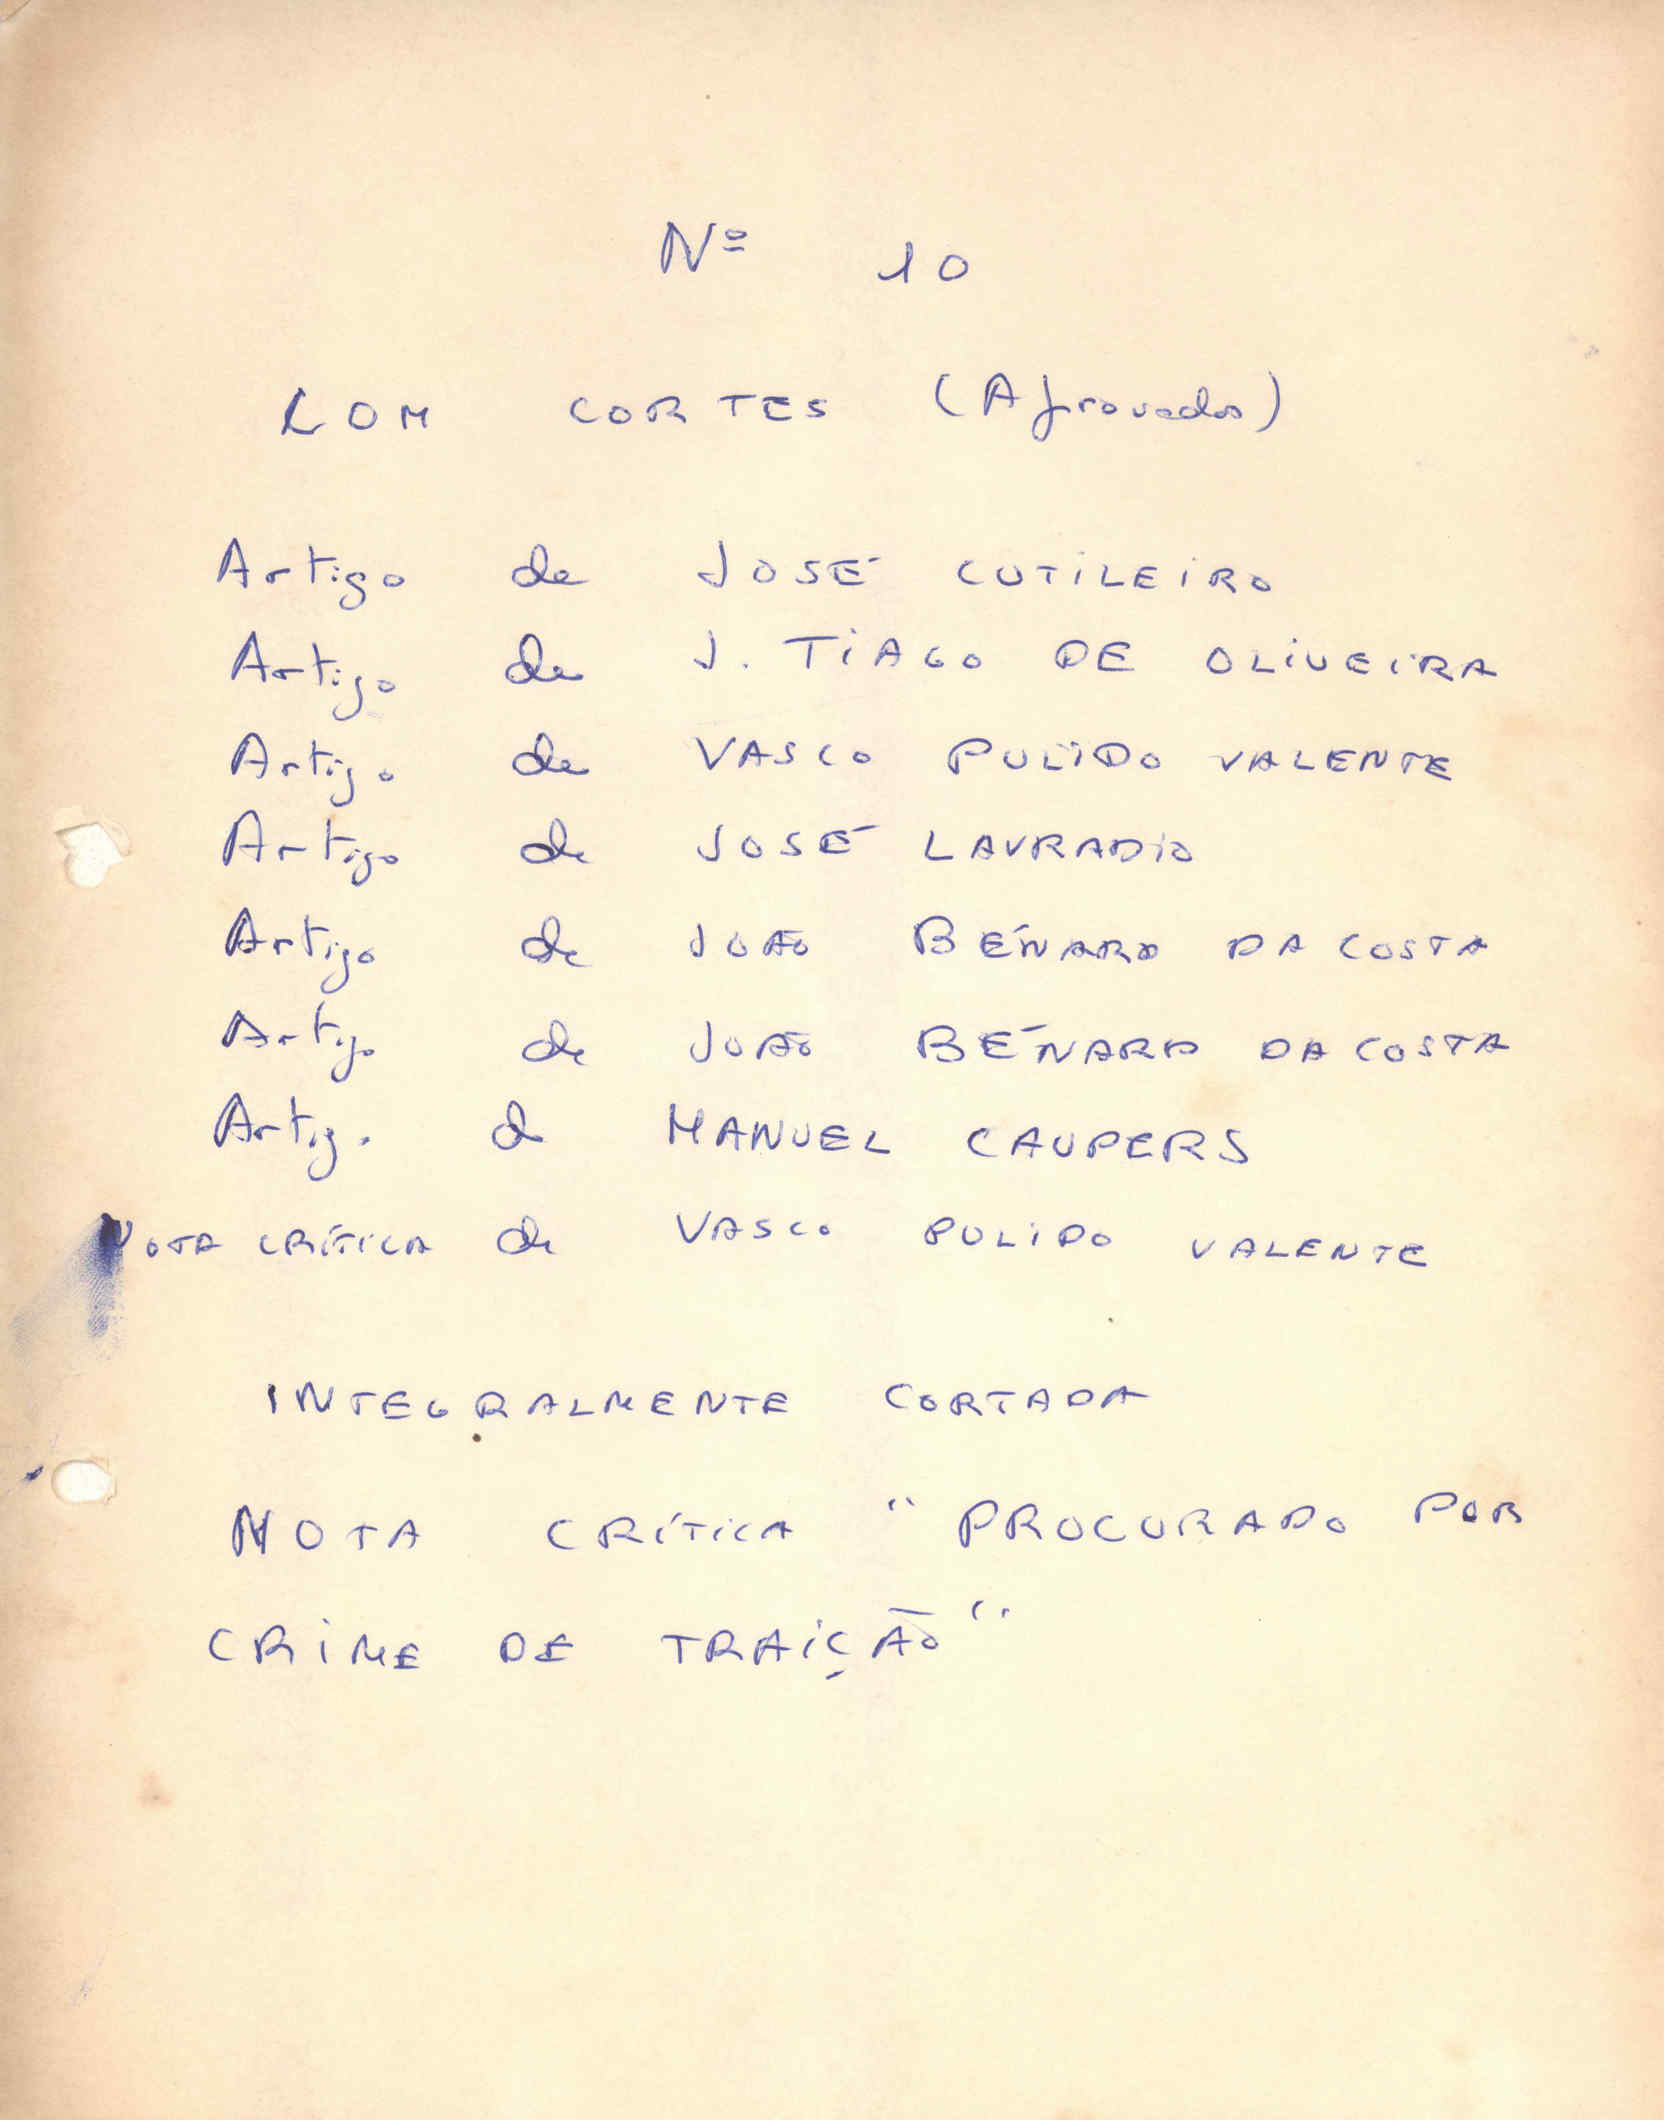 Nº 10
COM CORTES (Aprovados)
Artigo de JOSÉ CUTILEIRO
Artigo de J. TIAGO DE OLIVEIRA
Artigo de VASCO PULIDO VALENTE
Artigo de JOSÉ LAVRADIO
Artigo de JOÃO BÉNARD DA COSTA
Artigo de JOÃO BÉNARD DA COSTA
Artigo de MANUEL CAUPERS
NOTA CRÍTICA de VASCO PULIDO VALENTE
INTEGRALMENTE CORTADA
NOTA CRÍTICA "PROCURADO POR
CRIME DE TRAIÇÃO"